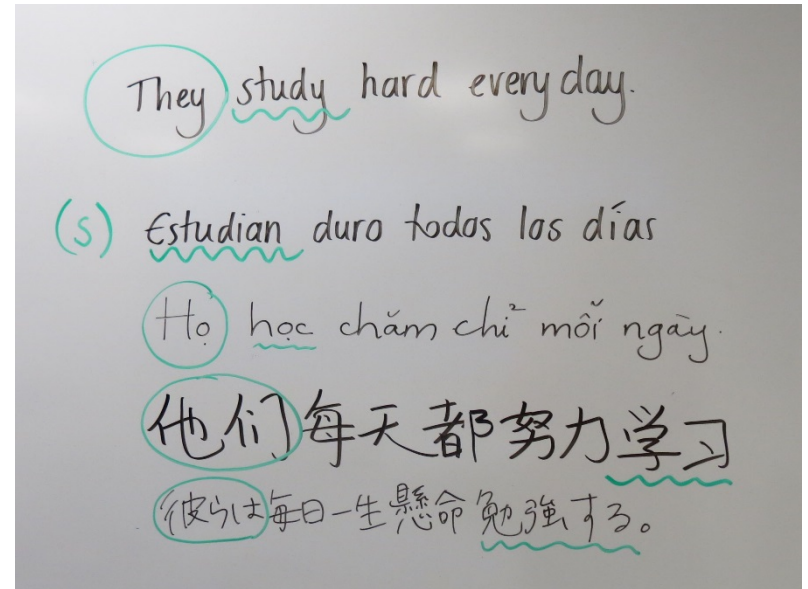 They study hard every day.
(s) Estudian duro todos los días
Họ học chăm chỉ mỗi ngày.
他们每天都努力学习
彼らは毎日一生懸命勉強する。